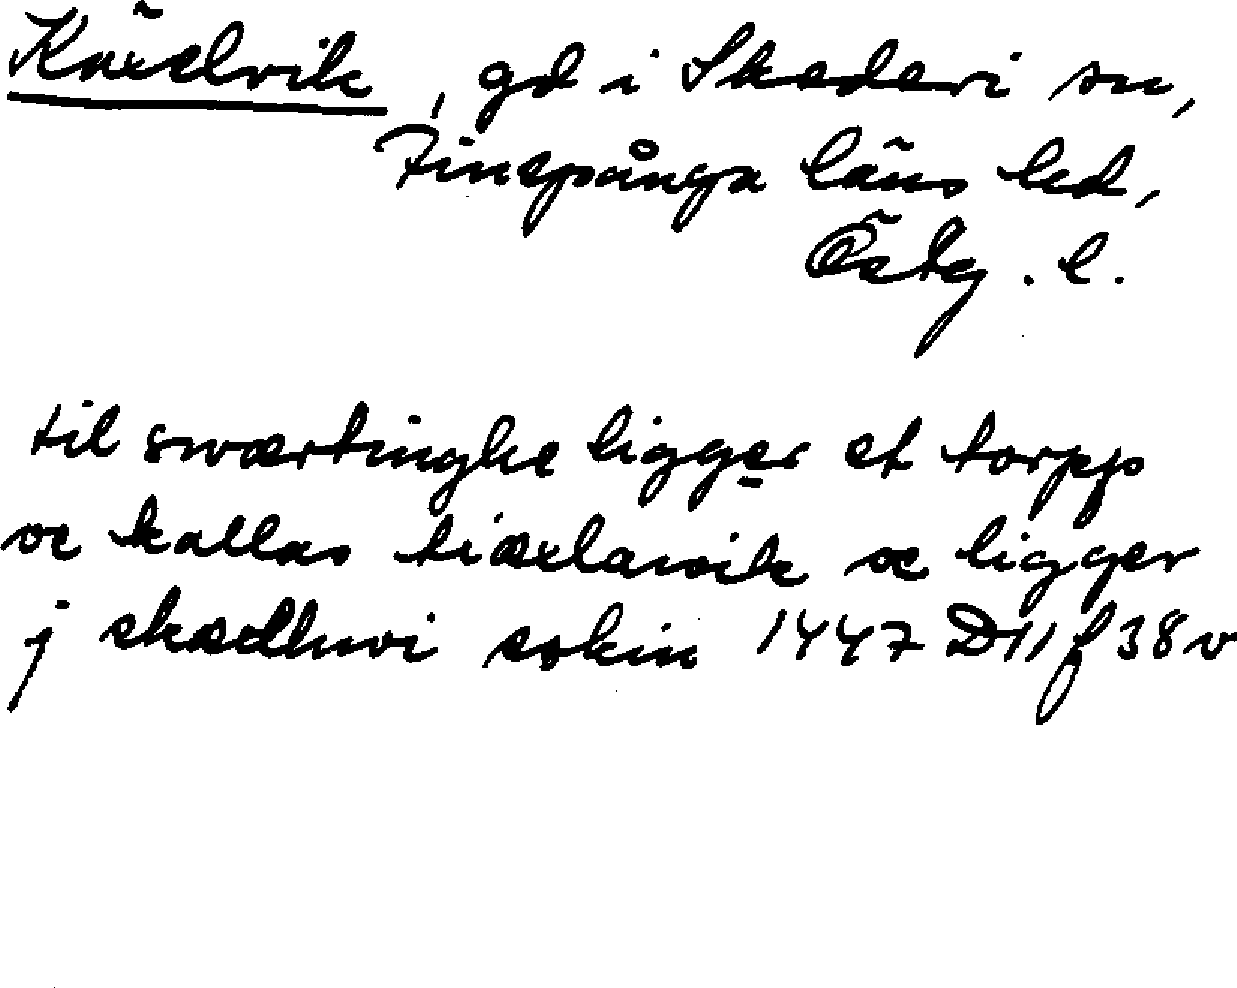 Käxelvik, gd i Skedevi sn,
Finspånga läns hd,
Östg. l.
til swærtinghe ligger et torpp
oc kallas kiæxlawik oc ligger
j skædhwi sokin 1447 D11 f 38v